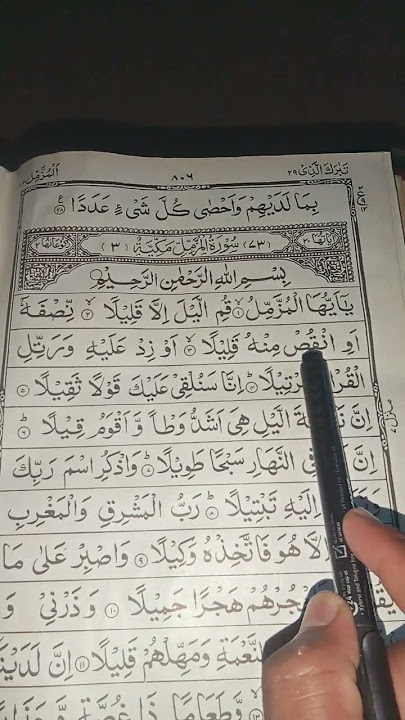 تَبٰرَكَ الَّذِیْ ٢٩ ٨٠٦ اَلْمُزَّمِّل
بِمَا لَدَیْهِمْ وَاَحْصٰی كُلَّ شَیْءٍ عَدَدًا
اٰیَاتُهَا ٢٠ (٧٣) سُوْرَةُ الْمُزَّمِّلِ مَكِّیَّةٌ (٣) رُكُوْعَاتُهَا ٢
بِسْمِ اللّٰهِ الرَّحْمٰنِ الرَّحِیْمِ
یٰۤاَیُّهَا الْمُزَّمِّلُ ١ قُمِ الَّیْلَ اِلَّا قَلِیْلًا ٢ نِّصْفَهٗۤ
اَوِ انْقُصْ مِنْهُ قَلِیْلًا ٣ اَوْ زِدْ عَلَیْهِ وَرَتِّلِ
الْقُرْ تِیْلًا ٤ اِنَّا سَنُلْقِیْ عَلَیْكَ قَوْلًا ثَقِیْلًا ٥
اِنَّ ةَ الَّیْلِ هِیَ اَشَدُّ وَطْاً وَّ اَقْوَمُ قِیْلًا ٦
اِنَّ فِی النَّهَارِ سَبْحًا طَوِیْلًا ٧ وَاذْكُرِ اسْمَ رَبِّكَ
اِلَیْهِ تَبْتِیْلًا ٨ رَبُّ الْمَشْرِقِ وَالْمَغْرِبِ
اِلَّا هُوَ فَاتَّخِذْهُ وَكِیْلًا ٩ وَاصْبِرْ عَلٰی مَا
جُرْهُمْ هَجْرًا جَمِیْلًا ١٠ وَذَرْنِیْ وَ
النَّعْمَةِ وَمَهِّلْهُمْ قَلِیْلًا ١١ اِنَّ لَدَیْنَاۤ
وَّطَعَامًا ذَا غُصَّةٍ وَّ